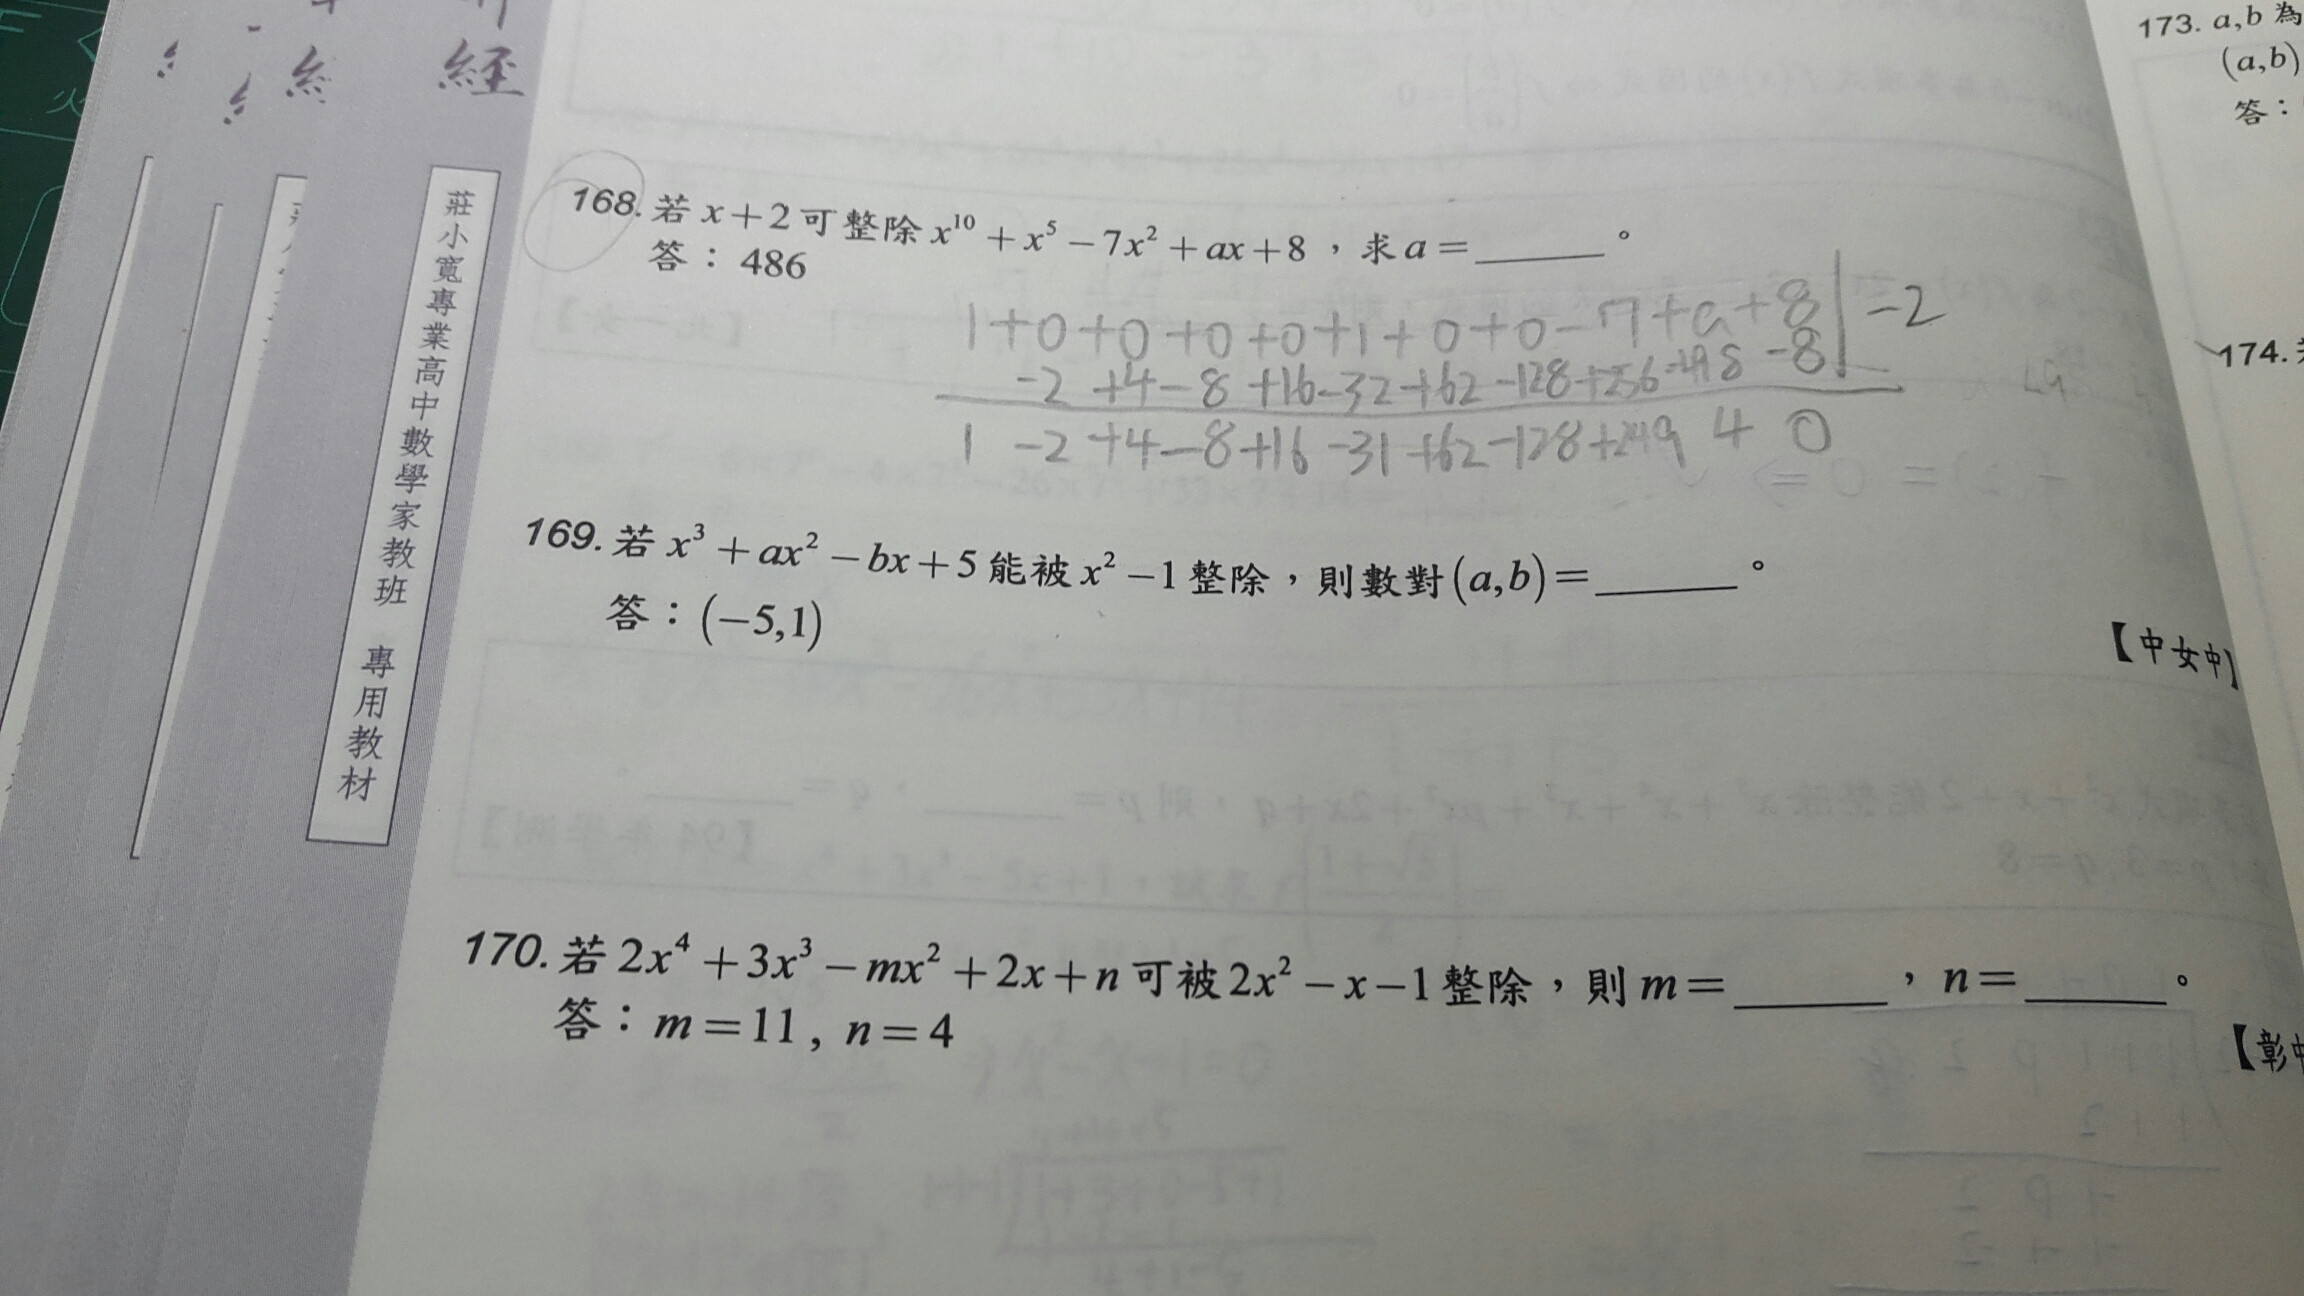 經
莊小寬專業高中數學家教班 專用教材
168. 若 x+2 可整除 x¹⁰ + x⁵ − 7x² + ax + 8 ，求 a = ______ 。
答：486
1+0+0+0+0+1+0+0−7+a+8 | −2
−2 +4−8 +16−32+62 −128+256−498 −8
1 −2 +4−8+16 −31 +62−128+249 4 0
169. 若 x³ + ax² − bx + 5 能被 x² − 1 整除，則數對 (a,b) = ______ 。
答：(−5,1)
【中女中】
170. 若 2x⁴ + 3x³ − mx² + 2x + n 可被 2x² − x − 1 整除，則 m = ______ ，n = ______ 。
答：m = 11 , n = 4
【彰中
173. a,b 為
(a,b)
答：
174.